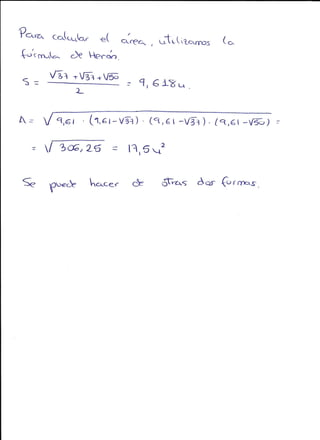 Para calcular el área, utilizamos la
fórmula de Herón.
S = (√37 + √37 + √50) / 2 = 9,618 u.
A = √(9,61 · (9,61-√37) · (9,61-√37) · (9,61-√50)) =
= √306,25 = 17,5 u²
Se puede hacer de otras dos formas.